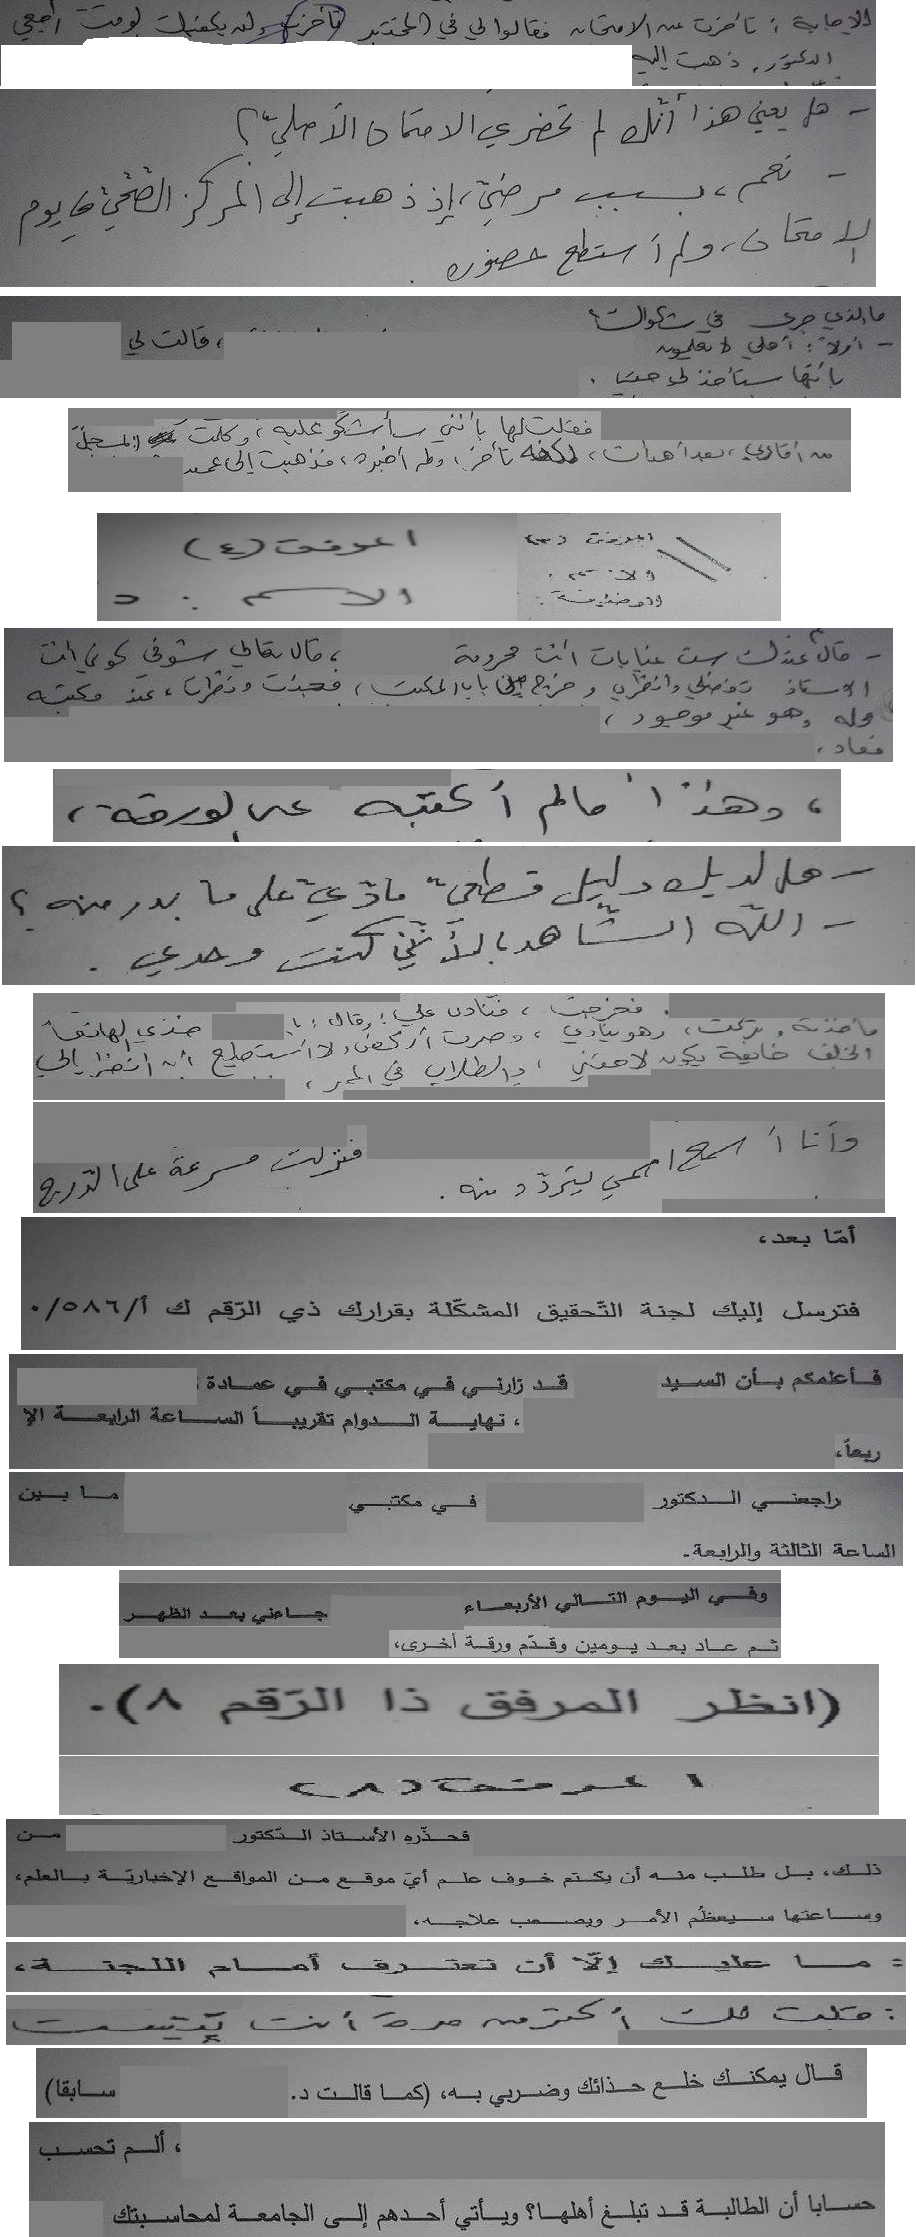 الإجابة: تأخرت عن الامتحان فقالوا لي في المختبر تأخرتِ ولن يكفيك لوقت أجعي
الدكتور، ذهبت إليه
- هل يعني هذا أنّك لم تحضري الامتحان الأصليّ؟
- نعم، بسبب مرضيّ، إذ ذهبت إلى المركز الصّحّيّ في يوم
الامتحان، ولم أستطع حضوره.
ما الذي جرى في شكواك؟
- أولاً: أهلي لا يعلمون ، قالت لي
بأنها ستأخذ لي حقي.
فقلت لها بأنني سأشكو عليه، وكلمت المسجل
من أقاربي، لكنه تأخر، ولم أخبره، فذهبت إلى عميد
المرفق (٣) المرفق (٤)
والاسم: الاسم: د
الوظيفة:
- قال عندك ست غيابات انت محرومة ، قال تعالي شوفي كوني انت
الاستاذ تفضلي وانظري وخرج إلى باب المكتب، فجئت ونظرت، عند مكتبه
وهو غير موجود،
فعاد،
، وهذا ما لم أكتبه على الورقة،
- هل لديك دليل قطعيّ ماديّ على ما بدر منه؟
- اللّه الشّاهد؛ لأنّني كنت وحدي.
فخرجت، فنادى علي؛ وقال: يا خذي الهاتف
فأخذته وتركت، وهو ينادي، وصرت أركض، ولا أستطيع أن انظر إلى
الخلف خايفة يكون لاحقني، والطلاب في الممر،
وأنا أسمع اسمي يتردّد منه. فنزلت مسرعة على الدّرج
أمّا بعد،
فترسل إليك لجنة التّحقيق المشكّلة بقرارك ذي الرّقم ك أ/٥٨٦/٠
فأعلمكم بأن السيد قد زارني في مكتبي في عمادة
، نهاية الدوام تقريباً الساعة الرابعة الإ
ربعاً،
راجعني الدكتور في مكتبي ما بين
الساعة الثالثة والرابعة.
وفي اليوم التالي الأربعاء جاءني بعد الظهر
ثم عاد بعد يومين وقدّم ورقة أخرى،
(انظر المرفق ذا الرّقم ٨).
المرفق (٨)
فحذّره الأستاذ الدّكتور من
ذلك، بل طلب منه أن يكتم خوف علم أيّ موقع من المواقع الإخباريّة بالعلم،
وساعتها سيعظُم الأمر ويصعب علاجه،
: ما عليك إلّا أن تعترف أمام اللجنة،
: قلت لك أكثر من مرة أنت
قال يمكنك خلع حذائك وضربي به، (كما قالت د. سابقا)
، ألم تحسب
حسابا أن الطالبة قد تبلغ أهلها؟ ويأتي أحدهم إلى الجامعة لمحاسبتك